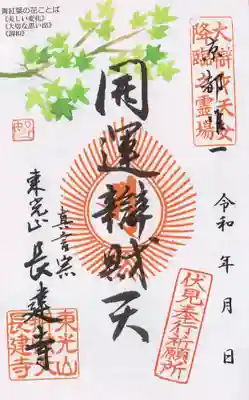 青紅葉の花ことば
《美しい変化》
《大切な思い出》
《調和》
大辯財天女
降臨霊場
京都
開運辯財天
令和 年 月 日
真言宗
東光山 長建寺
伏見奉行祈願所
東光山
長建寺